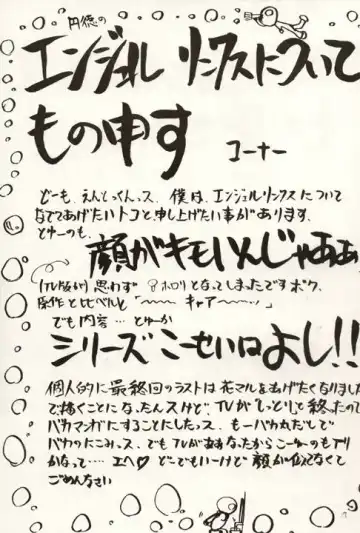 円徳の
エンジェル リンクスについて
もの申す
コーナー
どーも、えんとっくんっス、僕は、エンジェルリンクスについて
なでてあげたいトコと申し上げたい事があります、
とゆーのも、
顔がキモいんじゃああ
(TV版が) 思わず ホロリとなってしまったですボク、
原作と比べると「〜〜〜 キャア〜〜〜」
でも内容… とゆーか
シリーズこーせいはよし!!
個人的に最終回のラストは花マルをあげたくなりました
で描くことになったんスけど、TVが"しっとり"と終ったので
バカマンガにすることにしたっス、もーバカ丸だしで
バカのにこみっス、でもTVがああなったからこーゆーのもアリ
かなって…. エヘ♡ どーでもいーけど 顔が似てなくて
ごめんなさい